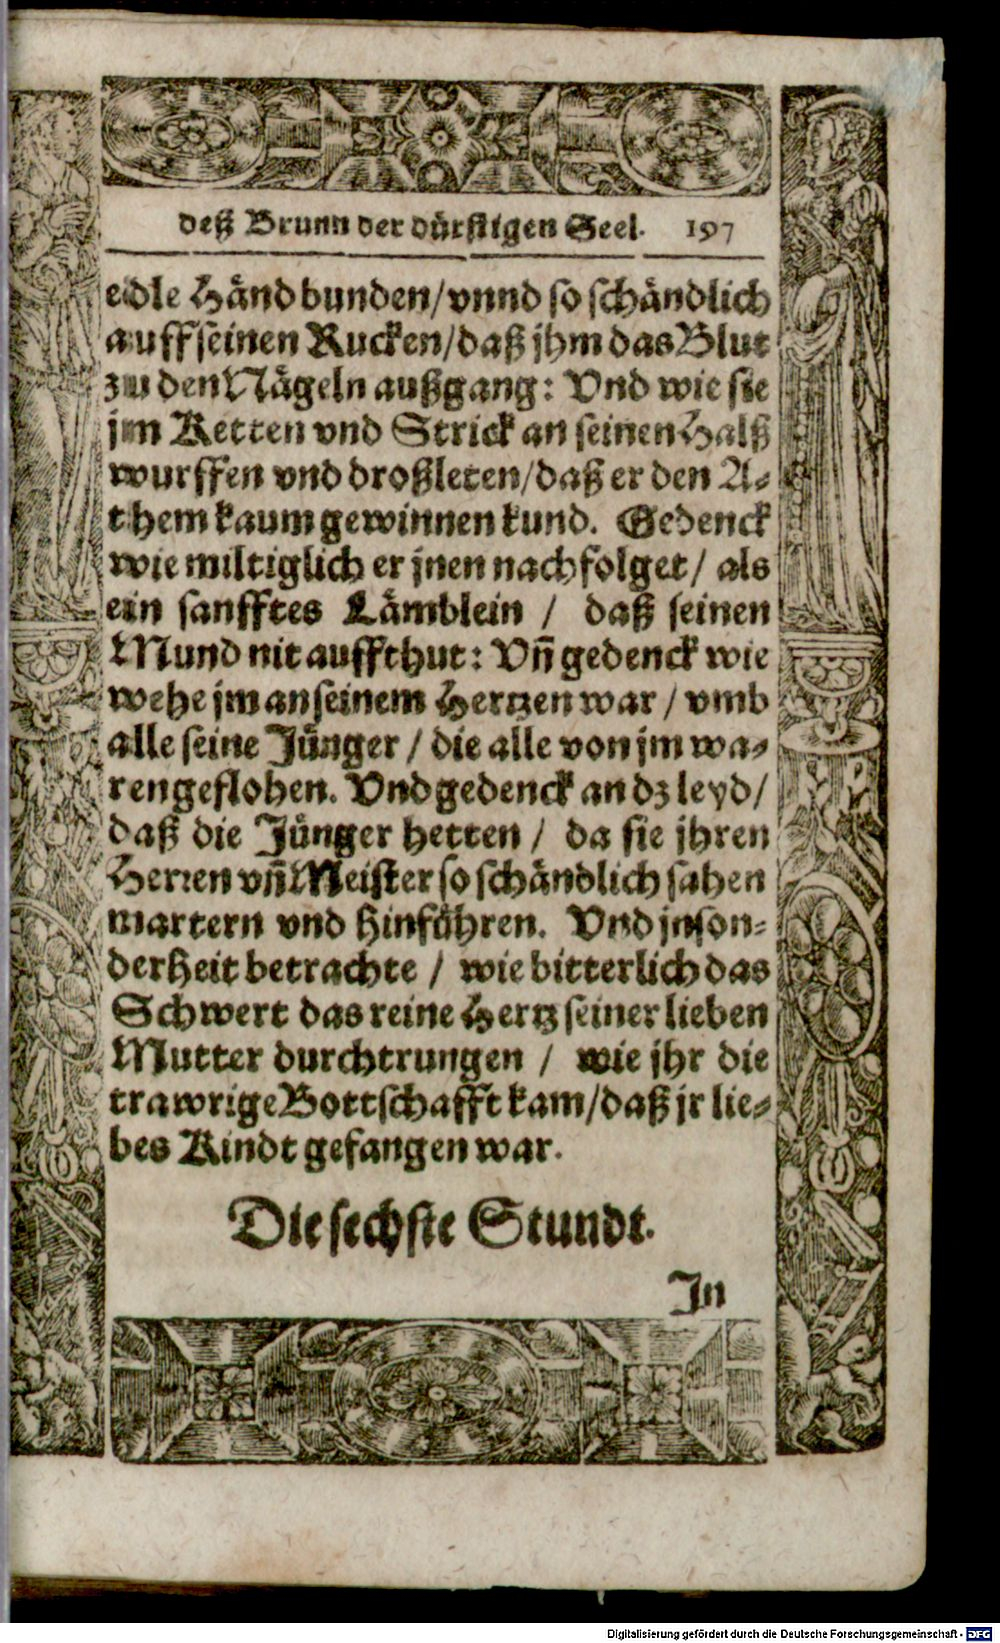 deß Brunn der dürstigen Seel. 197
edle Händ bunden/vnnd so schändlich
auff seinen Rucken/daß jhm das Blut
zu den Nägeln außgang: Vnd wie sie
jm Ketten vnd Strick an seinen Halß
wurffen vnd droßleten/daß er den A-
them kaum gewinnen kund. Gedenck
wie miltiglich er jnen nachfolget/ als
ein sanfftes Lämblein / daß seinen
Mund nit auffthut: Vñ gedenck wie
wehe jm an seinem Hertzen war / vmb
alle seine Jünger / die alle von jm wa-
ren geflohen. Vnd gedenck an dz leyd/
daß die Jünger hetten / da sie jhren
Herren vñ Meister so schändlich sahen
martern vnd hinführen. Vnd jnson-
derheit betrachte / wie bitterlich das
Schwert das reine Hertz seiner lieben
Mutter durchtrungen / wie jhr die
trawrige Bottschafft kam/daß jr lie-
bes Kindt gefangen war.
Die sechste Stundt.
Jn
Digitalisierung gefördert durch die Deutsche Forschungsgemeinschaft - DFG